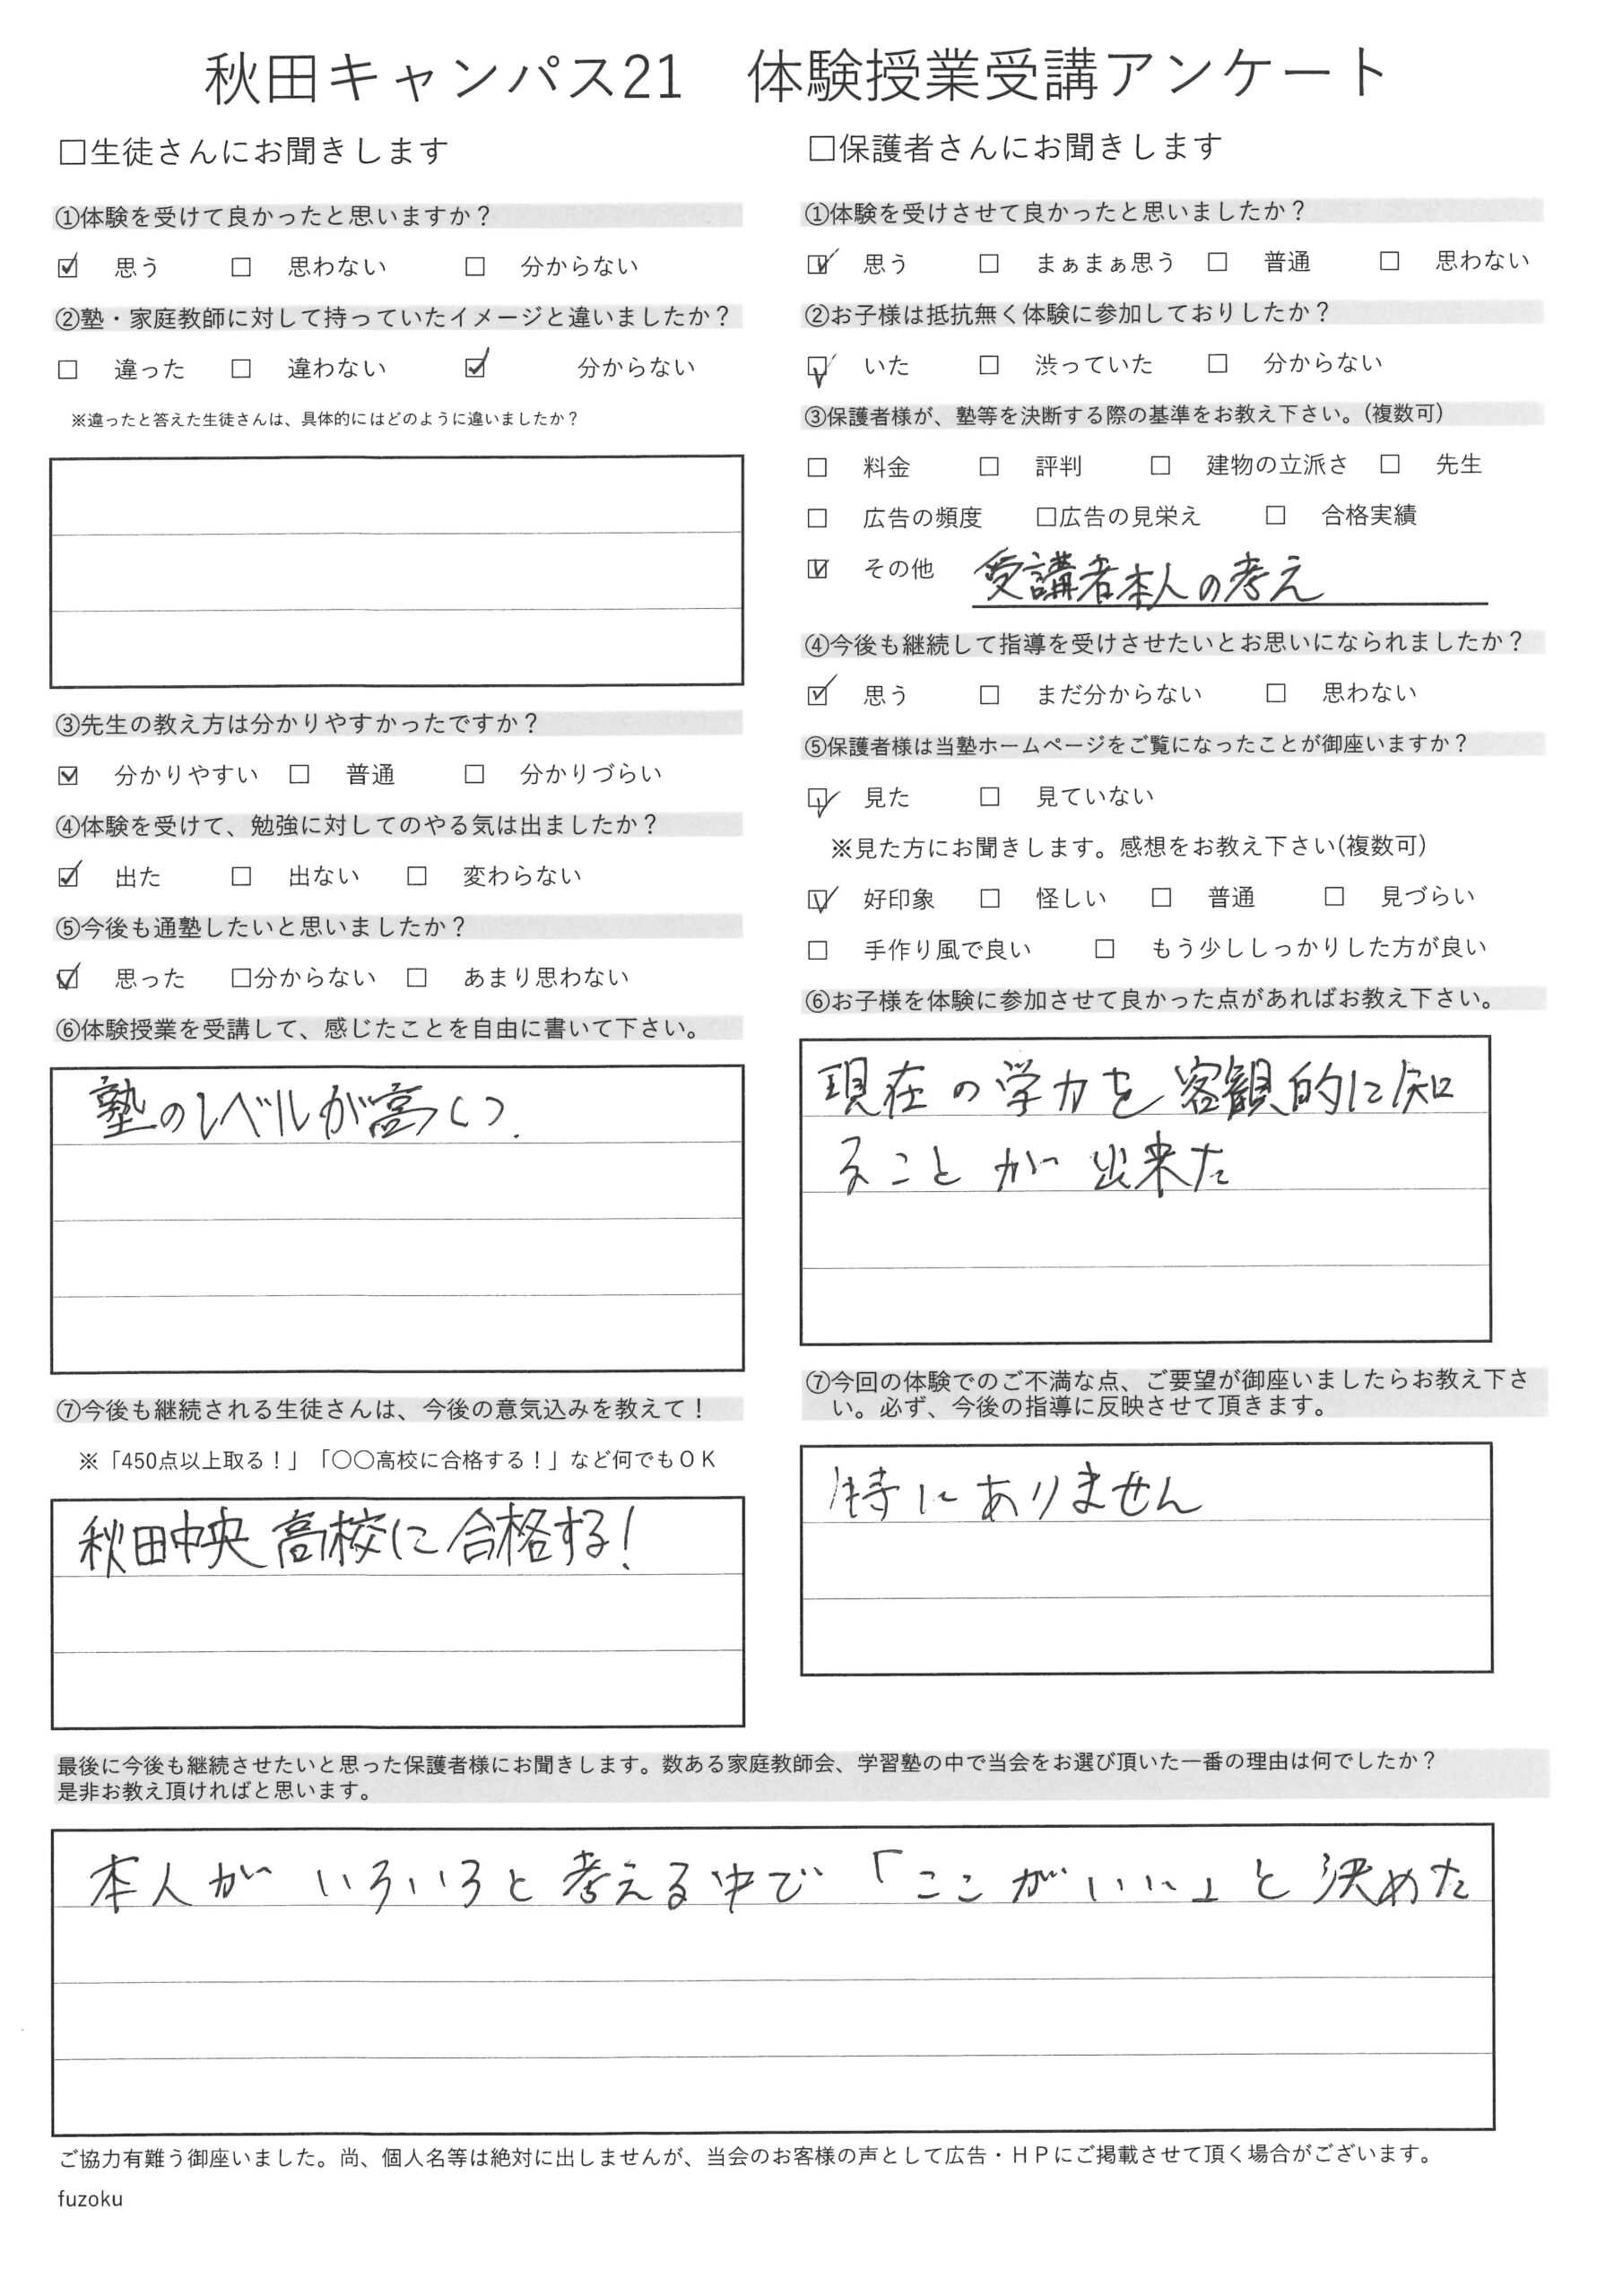 秋田キャンパス21　体験授業受講アンケート
□生徒さんにお聞きします
①体験を受けて良かったと思いますか？
☑ 思う □ 思わない □ 分からない
②塾・家庭教師に対して持っていたイメージと違いましたか？
□ 違った □ 違わない ☑ 分からない
※違ったと答えた生徒さんは、具体的にはどのように違いましたか？
③先生の教え方は分かりやすかったですか？
☑ 分かりやすい □ 普通 □ 分かりづらい
④体験を受けて、勉強に対してのやる気は出ましたか？
☑ 出た □ 出ない □ 変わらない
⑤今後も通塾したいと思いましたか？
☑ 思った □分からない □ あまり思わない
⑥体験授業を受講して、感じたことを自由に書いて下さい。
塾のレベルが高い.
⑦今後も継続される生徒さんは、今後の意気込みを教えて！
※「450点以上取る！」「〇〇高校に合格する！」など何でもＯＫ
秋田中央高校に合格する!
□保護者さんにお聞きします
①体験を受けさせて良かったと思いましたか？
☑ 思う □ まぁまぁ思う □ 普通 □ 思わない
②お子様は抵抗無く体験に参加しておりしたか？
☑ いた □ 渋っていた □ 分からない
③保護者様が、塾等を決断する際の基準をお教え下さい。(複数可)
□ 料金 □ 評判 □ 建物の立派さ □ 先生
□ 広告の頻度 □広告の見栄え □ 合格実績
☑ その他 受講者本人の考え
④今後も継続して指導を受けさせたいとお思いになられましたか？
☑ 思う □ まだ分からない □ 思わない
⑤保護者様は当塾ホームページをご覧になったことが御座いますか？
☑ 見た □ 見ていない
※見た方にお聞きします。感想をお教え下さい(複数可)
☑ 好印象 □ 怪しい □ 普通 □ 見づらい
□ 手作り風で良い □ もう少ししっかりした方が良い
⑥お子様を体験に参加させて良かった点があればお教え下さい。
現在の学力を客観的に知
ることが出来た
⑦今回の体験でのご不満な点、ご要望が御座いましたらお教え下さ
い。必ず、今後の指導に反映させて頂きます。
特にありません
最後に今後も継続させたいと思った保護者様にお聞きします。数ある家庭教師会、学習塾の中で当会をお選び頂いた一番の理由は何でしたか？
是非お教え頂ければと思います。
本人がいろいろと考える中で「ここがいい」と決めた
ご協力有難う御座いました。尚、個人名等は絶対に出しませんが、当会のお客様の声として広告・ＨＰにご掲載させて頂く場合がございます。
fuzoku